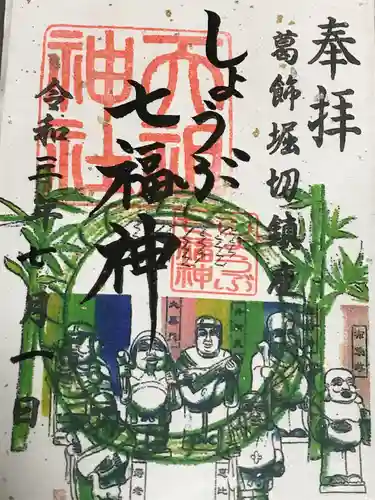 奉拝
葛飾堀切鎮座
しょうぶ
七福神
令和三年七月一日
天祖
神社